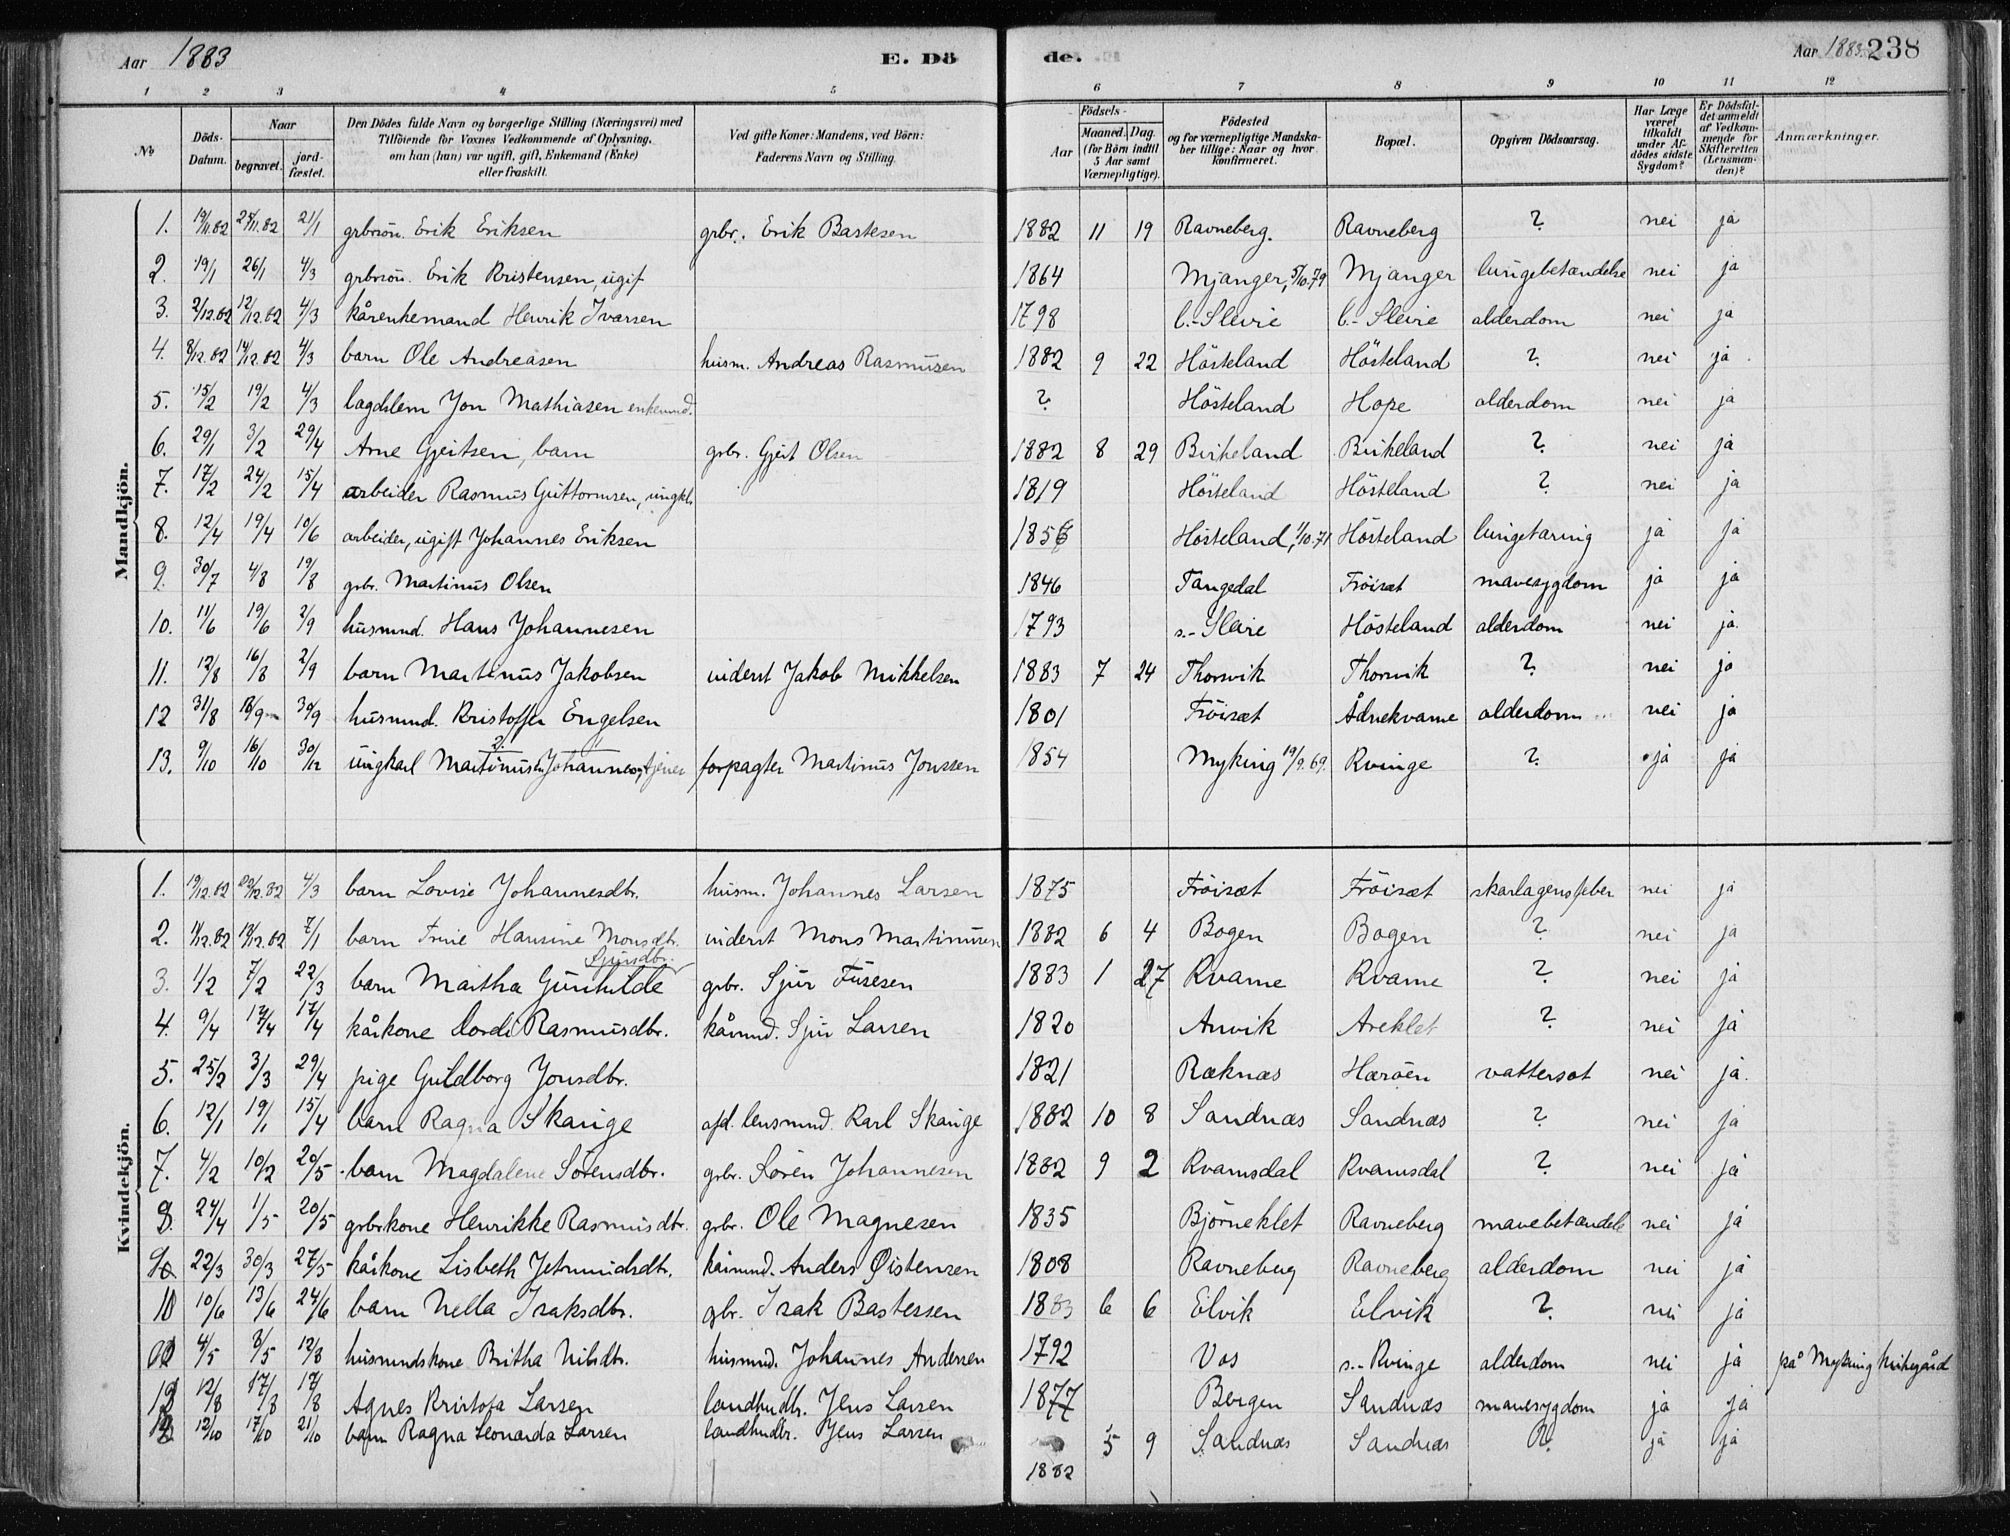 Aar 1883 E. Dö de. Aar 1883. 238
1 2 3 4 5 6 7 8 9 10 11 12
No Döds-Datum. Naar begravet. jord-fæstet. Den Dödes fulde Navn og borgerlige Stilling (Næringsvei) med Tilföiende for Voxnes Vedkommende af Oplysning, om han (hun) var ugift, gift, Enkemand (Enke) eller fraskilt. Ved gifte Koner: Mandens, ved Börn: Faderens Navn og Stilling. Födsels- Aar Maaned. Dag. (for Börn indtil 5 Aar samt Værnepligtige). Födested og for værnepligtige Mandskaber tillige: Naar og hvor konfirmeret. Bopæl. Opgiven Dödsaarsag. Har Læge været tilkaldt under Afdödes sidste Sygdom? Er Dödsfaldet anmeldt af Vedkommende for Skifteretten (Lensmanden)? Anmærkninger.
Mandkjön.
1. 19/11.82 25/11.82 21/1 grbrsön. Erik Eriksen grbr. Erik Bastesen 1882 11 19 Ravneberg. Ravneberg ? nei ja
2. 19/1 26/1 4/3 grbrsön. Erik Kristensen, ugift 1864 Mjanger, 5/10.79 Mjanger lungebetændelse nei ja
3. 2/12.82 12/12.82 4/3 kårenkemand Henrik Ivarsen 1798 l.-Sleire l.-Sleire alderdom nei ja
4. 8/12.82 14/12.82 4/3 barn Ole Andreasen husm. Andreas Rasmusen 1882 9 22 Hösteland Hösteland ? nei ja
5. 15/2 19/2 4/3 lægdslem Jon Mathiasen enkemnd. ? Hösteland Hope alderdom nei ja
6. 29/1 3/2 29/4 Arne Gjertsen, barn grbr. Gjert Olsen 1882 8 29 Birkeland Birkeland ? nei ja
7. 17/2 24/2 15/4 arbeider Rasmus Guttormsen, ungkl. 1819 Hösteland Hösteland ? nei ja
8. 12/4 19/4 10/6 arbeider, ugift Johannes Eriksen 1856 Hösteland, 1/10.71 Hösteland lungetæring ja ja
9. 30/7 4/8 19/8 grbr. Martinus Olsen 1846 Tangedal Fröiset mavesygdom ja ja
10. 11/6 19/6 2/9 husmnd. Hans Johannesen 1793 s.-Sleire Hösteland alderdom nei ja.
11. 12/8 16/8 2/9 barn Martinus Jakobsen inderst Jakob Mikkelsen 1883 7 24 Thorsvik Thorsvik ? nei ja
12 31/8 18/9 30/9 husmnd. Kristoffer Engelsen 1801 Fröiset Ådnekvame alderdom nei ja
13. 9/10 16/10 30/12 ungkarl Martinus Johannes, tjener forpagter Martinus Jonssen 1854 Myking 19/9.69. Kvinge ? ja ja
Kvindekjön.
1. 19/12.82 12.82 4/3 barn Lovise Johannesdtr. husm. Johannes Larsen 1875 Fröiset Fröiset skarlagensfeber nei ja
2. 11/12.82 18/12.82 7/1 barn Trine Hansine Monsdtr. inderst Mons Martinusen 1882 6 4 Bogen Bogen ? nei ja
Sjursdtr.
3. 1/2 7/2 22/3 barn Martha Gunhilde grbr. Sjur Fusesen 1883 1 27 Kvame Kvame ? nei ja
4. 9/4 17/4 17/4 kårkone Dordi Rasmusdtr. kårmnd. Sjur Larsen 1820 Anvik Areklet ? nei ja
5. 25/2 3/3 29/4 pige Guldborg Jonsdtr. 1821 Ræknæs Hæröen vattersot nei ja.
6. 12/1 19/1 15/4 barn Ragna Skauge afd. lensmnd. Karl Skauge 1882 10 8 Sandnæs Sandnæs ? nei ja
7. 4/2 10/2 20/5 barn Magdalene Sörensdtr. grbr. Sören Johannesen 1882 9 2 Kvamsdal Kvamsdal ? nei ja
8. 24/4 1/5 20/5 grbrkone Henrikke Rasmusdtr. grbr. Ole Magnesen 1835 Björneklet Ravneberg mavebetændele nei ja
22/3 30/3 27/5 kårkone Lisbeth Jetmundsdtr. kårmnd. Anders Øistensen 1808 Ravneberg Ravneberg alderdom nei ja
10 10/6 13/6 24/6 barn Nella Isaksdtr. gbr. Isak Bastessen 1883 6 6 Elvik Elvik ? nei ja
4/5 8/5 12/8 husmndskone Britha Nilsdtr. husmnd. Johannes Andersen 1792 Vos s.-Kvinge alderdom nei ja på Myking kirkegård
12/8 17/8 17/8 Agnes Kristofa Larsen landhndlr. Jens Larsen 1877 Bergen Sandnæs mavesygdom ja ja
12/10 17/10 21/10 barn Ragna Leonarda Larsen landhndlr. Jens Larsen 5 9 Sandnæs Sandnæs ? ja ja
1882